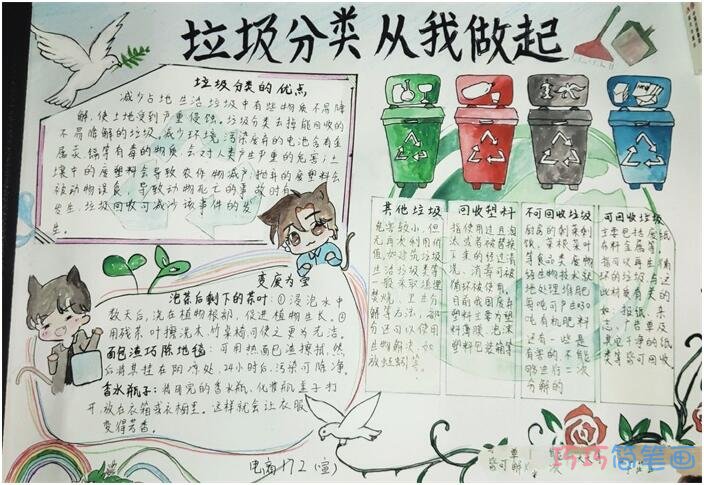 垃圾分类从我做起
垃圾分类的优点
减少占地生活垃圾中有些物质不易降
解,使土地受到严重侵蚀。垃圾分类去掉能回收的
不易降解的垃圾,减少环境污染废弃的电池含有金
属汞、镉等有毒的物质,会对人类产生严重的危害;土
壤中的废塑料会导致农作物减产;抛弃的废塑料会
被动物误食,导致动物死亡的事故时有
发生,垃圾回收可减少该事件的发
生。
变废为宝
泡茶后剩下的茶叶:①浸泡水中
数天后,浇在植物根部,促进植物生长。②
用残茶叶擦洗木、竹桌椅可使之更为光洁。
面包渣巧除地毯:可用热面包渣擦拭,然
后将其挂在阴凉处,24小时后,污染可除净。
香水瓶子:将用完的香水瓶、化妆瓶盖子打
开,放在衣箱或衣柜里。这样就会让衣服
变得芳香。
其他垃圾
危害较小,但
无再次利用价
值,如建筑垃圾
生活垃圾类等
一般采取填埋
焚烧、卫生分
解等方法,部
分还可以使用
生物解决,如
放蚯蚓等。
回收塑料
指使用过且淘
汰或者被替换
下来的经过清
洗、消毒可被
循环被使用。
目前我国废弃
塑料主要为塑
料薄膜、泡沫
塑料包装箱等
不可回收垃圾
厨房的剩菜剩
饭、菜根菜叶
等食品类废物
经生物技术就
地处理堆肥
每吨可产生0.3
吨有机肥料
还有一些是
有害的、不能
够进行二次
分解的
可回收垃圾
主要包括废纸
布料金属等
指可以再生循
环的垃圾与此
此材质有关的
如:报纸、杂
志、广告单及
其它干净的纸
类等皆可回收
电商172(宣)
巧巧简笔画